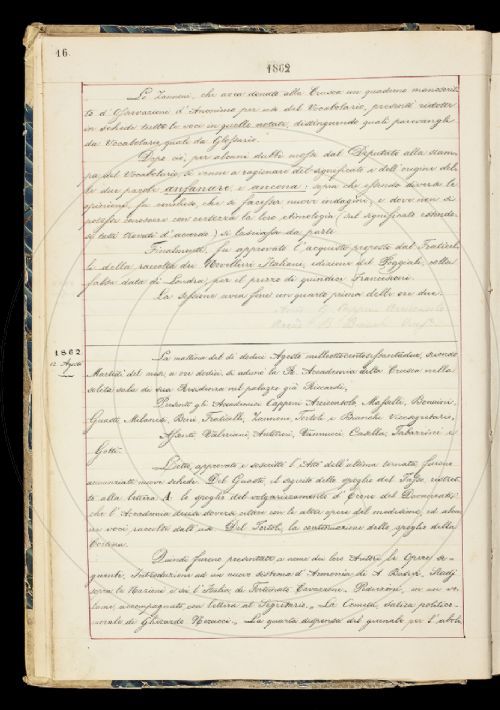 16.
1862
Lo Zannoni, che avea donato alla Crusca un quaderno manoscrit-
to d'Osservazione d'Anonimo per uso del Vocabolario, presentò ridotte
in schede tutte le voci in quello notate, distinguendo quali parevangli
da Vocabolario, quali da Glossario.
Dopo ciò, per alcuni dubbi mossi dal Deputato alla stam-
pa del Vocabolario, si venne a ragionare del significato e dell'origine del-
le due parole anfanare e ancona: sopra che essendo diverse le
opinioni, fu concluso che si facesser nuove indagini, e dove non si
potesse conoscere con certezza la loro etimologia (sul significato essendo-
si tutti trovati d'accordo) si lasciasse da parte.
Finalmente, fu approvato l'acquisto proposto dal Fraticel-
li della raccolta dei Novellieri Italiani, edizione del Poggiali, colla
falsa data di Londra, per il prezzo di quindici Francesconi.
La sessione avea fine un quarto prima delle ore due.
1862.
12 Agosto
La mattina del dì dodici Agosto milleottocentosessantadue, secondo
Martedì del mese, a ore dodici, si adunò la R. Accademia della Crusca nella
solita sala di sua Residenza nel palazzo già Riccardi,
Presenti gli Accademici Capponi Arciconsolo, Mafalli, Bonaini,
Guasti, Milanesi, Bini, Fraticelli, Zannoni, Tortoli e Bianchi Vicesegretario,
Assenti Valeriani, Antinori, Vannucci, Casella, Tabarrini e
Gotti.
Letto, approvato e soscritto l'Atto dell'ultima tornata, furono
annunziate nuove schede: Del Guasti, il seguito dello spoglio del Tasso, restret-
to alla lettera A. lo spoglio del volgarizzamento d'
che l'Accademia dovrà citare con le altre opere del medesimo, ed alcu-
ne voci raccolte dall'uso. Del Tortoli, la continuazione dello spoglio della
Quindi furono presentate a nome dei loro Autori le Opere se-
guenti. Introduzione ad un nuovo sistema d'Armonia di A. Basevi. Studj
sopra le Nazioni e su l'Italia, di Fortunato Cavazzoni-Pederzini, in un vo-
lume, accompagnato con lettera al Segretario. La Comedia, satira politico-
morale di Gherardo Nerucci. La quarta dispensa del giornale per l'aboli-